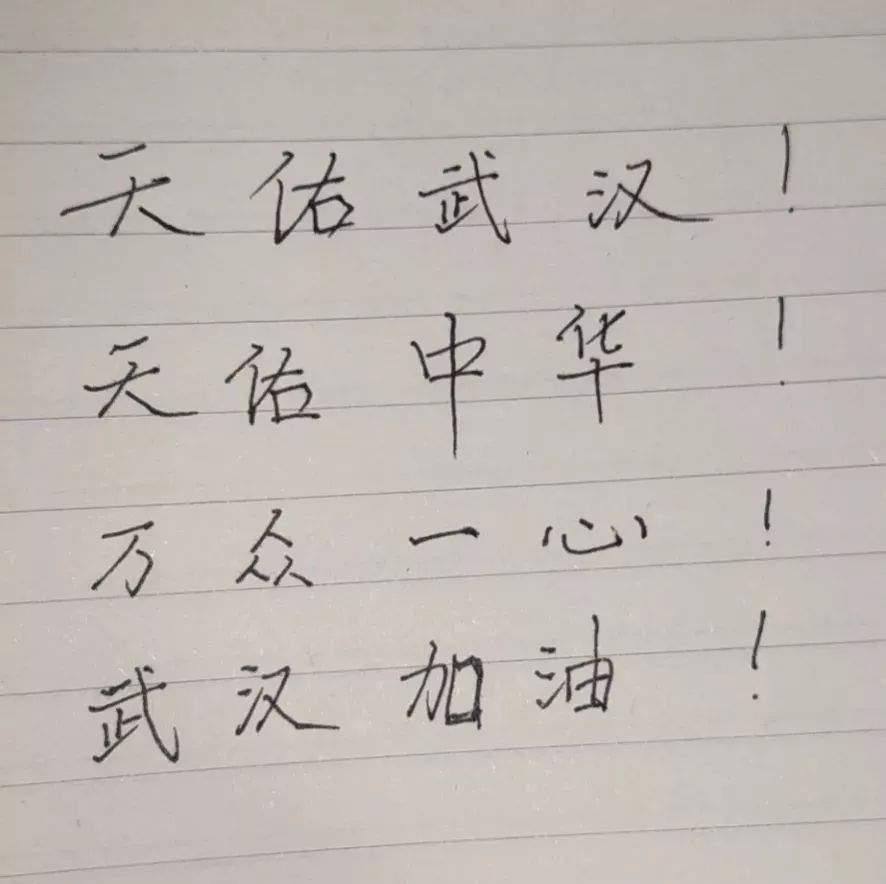 天佑武汉！
天佑中华！
万众一心！
武汉加油！